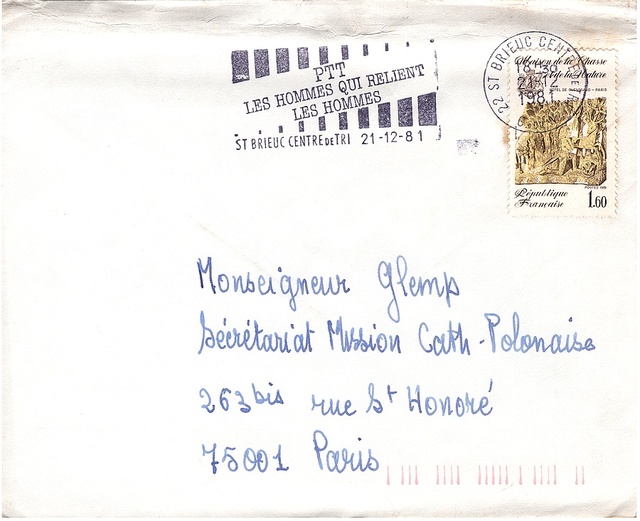 PTT
LES HOMMES QUI RELIENT
LES HOMMES
ST BRIEUC CENTRE DE TRI 21-12-81
22 ST BRIEUC CENTRE
18-30
21-12
1981
Maison de la Chasse
et de la Nature
HÔTEL DE GUÉNÉGAUD - PARIS
République
Française
POSTES 1981
1.60
Monseigneur Glemp
Sécrétariat Mission Cath-Polonaise
263 bis rue St Honoré
75001 Paris